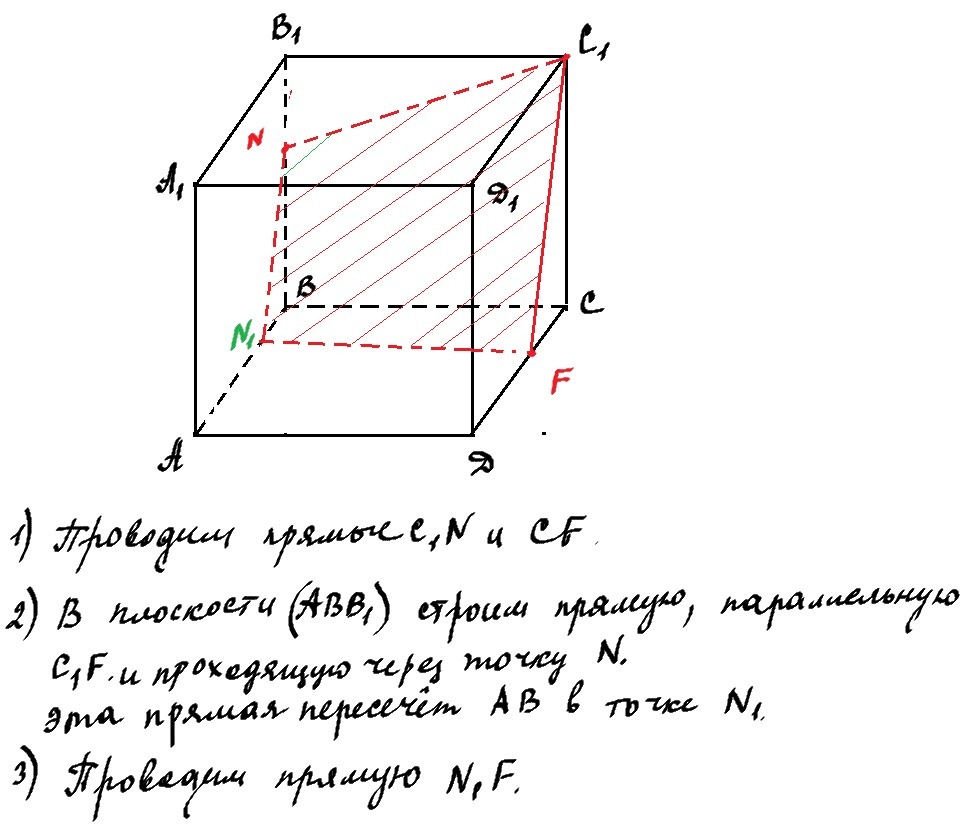 B₁
C₁
N
A₁
D₁
B
C
N₁
F
A
D
1) Проводим прямые C₁N и CF.
2) В плоскости (ABB₁) строим прямую, параллельную
C₁F. и проходящую через точку N.
Эта прямая пересечёт AB в точке N₁.
3) Проводим прямую N₁F.